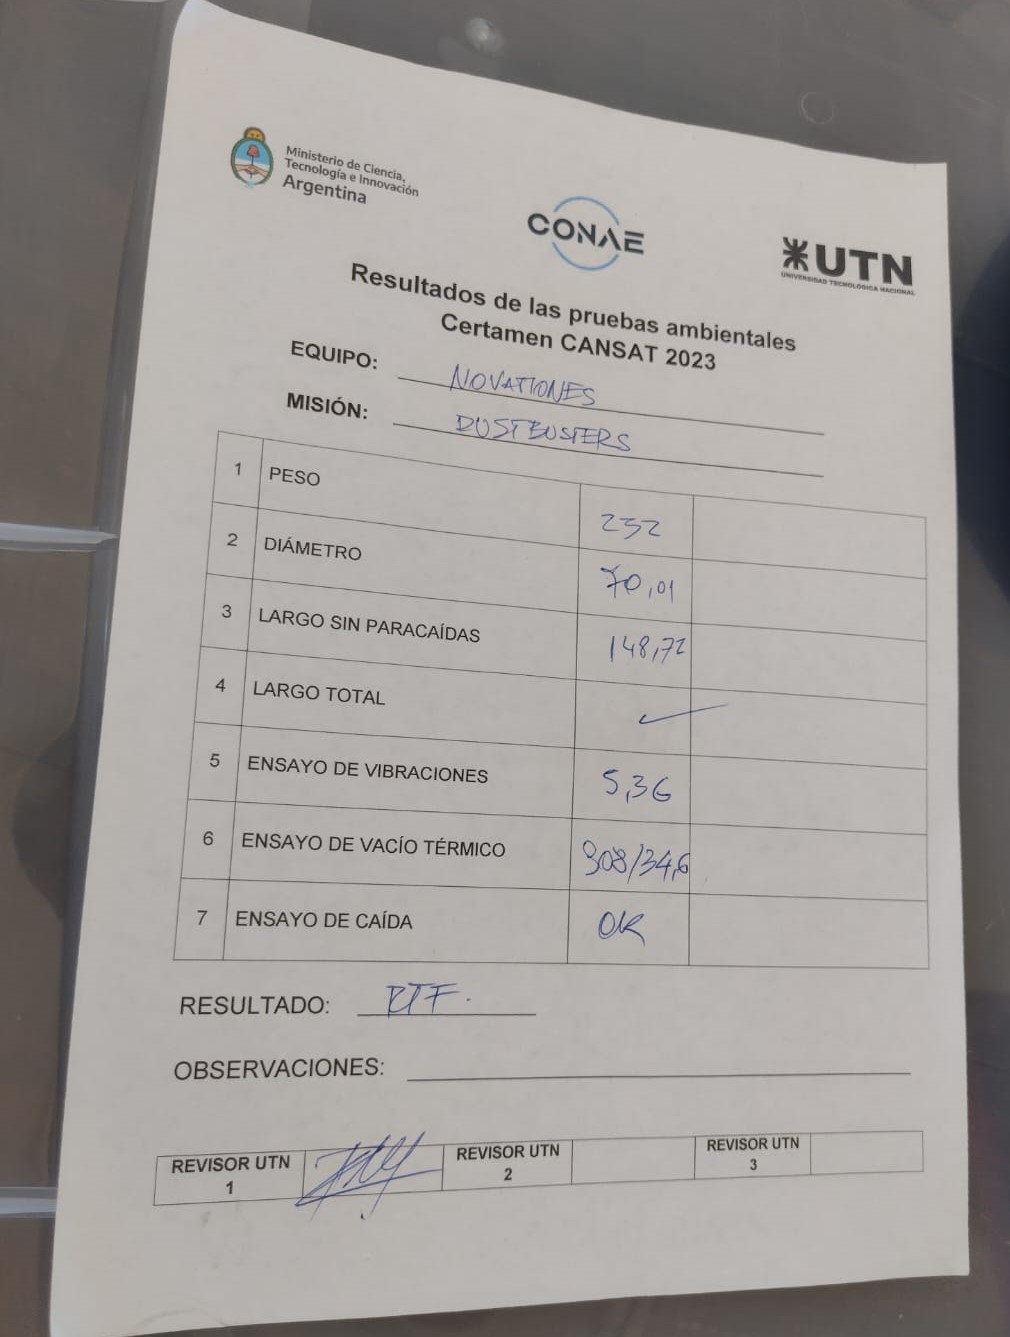 Ministerio de Ciencia,
Tecnología e Innovación
Argentina
CONAE
UTN
UNIVERSIDAD TECNOLÓGICA NACIONAL
Resultados de las pruebas ambientales
Certamen CANSAT 2023
EQUIPO: NOVATIONES
MISIÓN: DUSTBUSTERS
1 PESO 232
2 DIÁMETRO 70,01
3 LARGO SIN PARACAÍDAS 148,72
4 LARGO TOTAL ✓
5 ENSAYO DE VIBRACIONES 5,3G
6 ENSAYO DE VACÍO TÉRMICO 308/34,6
7 ENSAYO DE CAÍDA OK
RESULTADO: RTF.
OBSERVACIONES:
REVISOR UTN 1 REVISOR UTN 2 REVISOR UTN 3